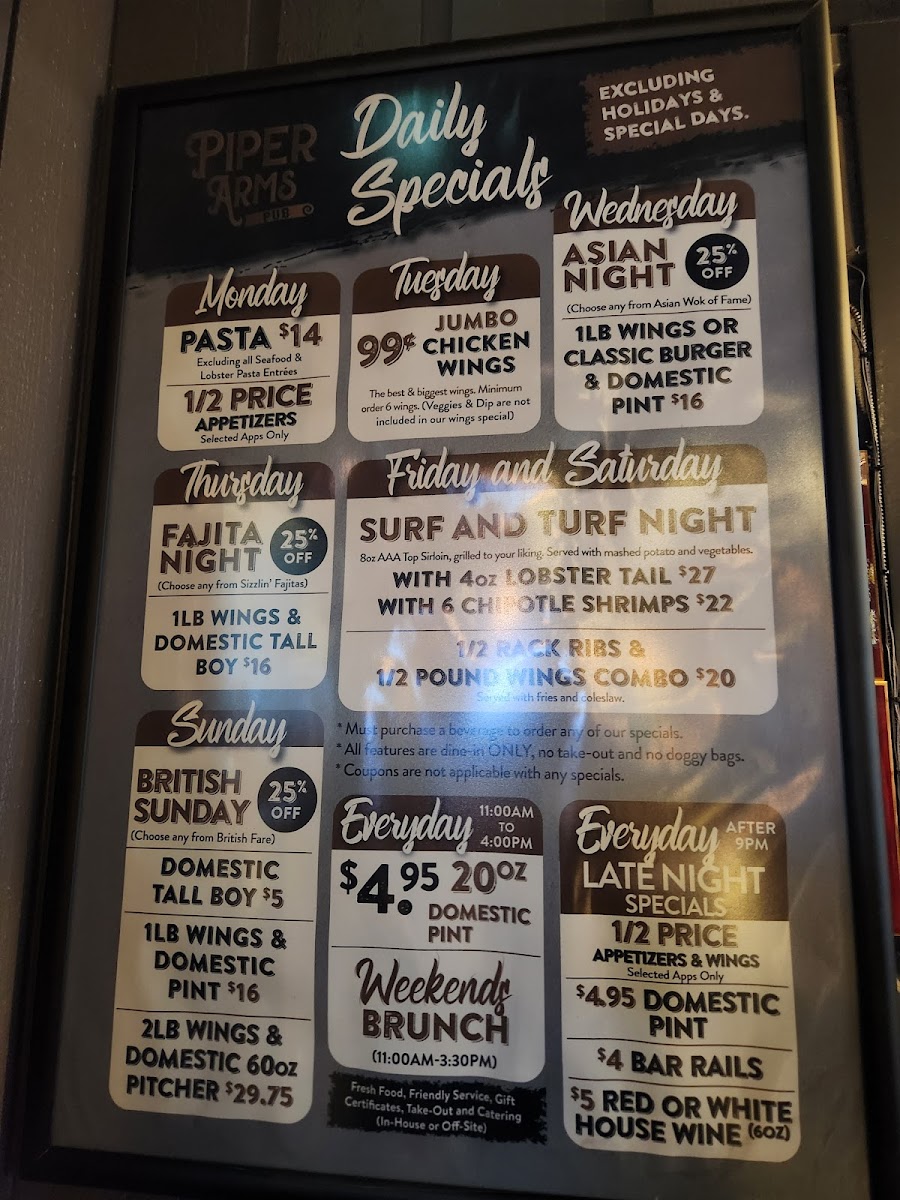 PIPER
ARMS
PUB
Daily
Specials
EXCLUDING
HOLIDAYS &
SPECIAL DAYS.
Monday
PASTA $14
Excluding all Seafood &
Lobster Pasta Entrées
1/2 PRICE
APPETIZERS
Selected Apps Only
Tuesday
99¢ JUMBO
CHICKEN
WINGS
The best & biggest wings. Minimum
order 6 wings. (Veggies & Dip are not
included in our wings special)
Wednesday
ASIAN
NIGHT
25%
OFF
(Choose any from Asian Wok of Fame)
1LB WINGS OR
CLASSIC BURGER
& DOMESTIC
PINT $16
Thursday
FAJITA
NIGHT
25%
OFF
(Choose any from Sizzlin' Fajitas)
1LB WINGS &
DOMESTIC TALL
BOY $16
Friday and Saturday
SURF AND TURF NIGHT
8oz AAA Top Sirloin, grilled to your liking. Served with mashed potato and vegetables.
WITH 4OZ LOBSTER TAIL $27
WITH 6 CHIPOTLE SHRIMPS $22
1/2 RACK RIBS &
1/2 POUND WINGS COMBO $20
Served with fries and coleslaw.
* Must purchase a beverage to order any of our specials.
* All features are dine-in ONLY, no take-out and no doggy bags.
* Coupons are not applicable with any specials.
Sunday
BRITISH
SUNDAY
25%
OFF
(Choose any from British Fare)
DOMESTIC
TALL BOY $5
1LB WINGS &
DOMESTIC
PINT $16
2LB WINGS &
DOMESTIC 60OZ
PITCHER $29.75
Everyday
11:00AM
TO
4:00PM
$4.95 20OZ
DOMESTIC
PINT
Weekends
BRUNCH
(11:00AM-3:30PM)
Fresh Food, Friendly Service, Gift
Certificates, Take-Out and Catering
(In-House or Off-Site)
Everyday
AFTER
9PM
LATE NIGHT
SPECIALS
1/2 PRICE
APPETIZERS & WINGS
Selected Apps Only
$4.95 DOMESTIC
PINT
$4 BAR RAILS
$5 RED OR WHITE
HOUSE WINE (6OZ)